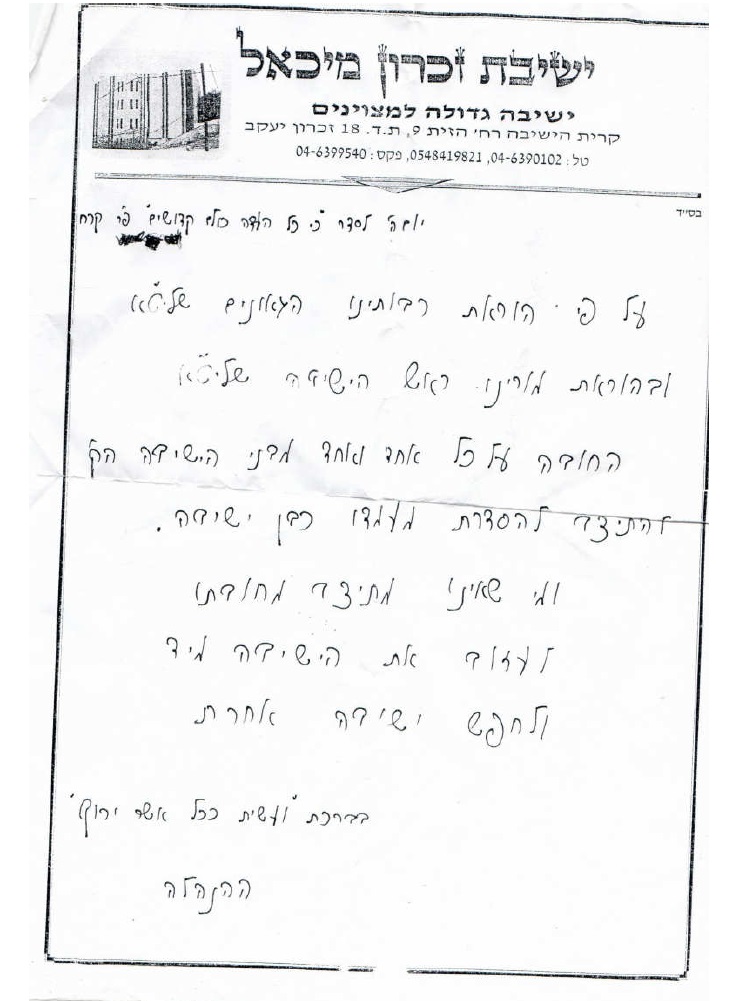 ישיבת זכרון מיכאל
ישיבה גדולה למצויינים
קרית הישיבה רח' הזית 9, ת.ד. 18 זכרון יעקב
טל: 04-6390102, 0548419821, פקס: 04-6399540
בסייד
יום ה' לסדר "כי כל העדה כולם קדושים" פר' קרח
על פי הוראת רבותינו הגאונים שליט"א
ובהוראת מורינו ראש הישיבה שליט"א
החובה על כל אחד ואחד מבני הישיבה הק'
להתיצב להסדרת מעמדו כבן ישיבה.
ומי שאינו מתיצב מחובתו
לעזוב את הישיבה מיד
ולחפש ישיבה אחרת
בברכת "ועשית ככל אשר יורוך"
ההנהלה